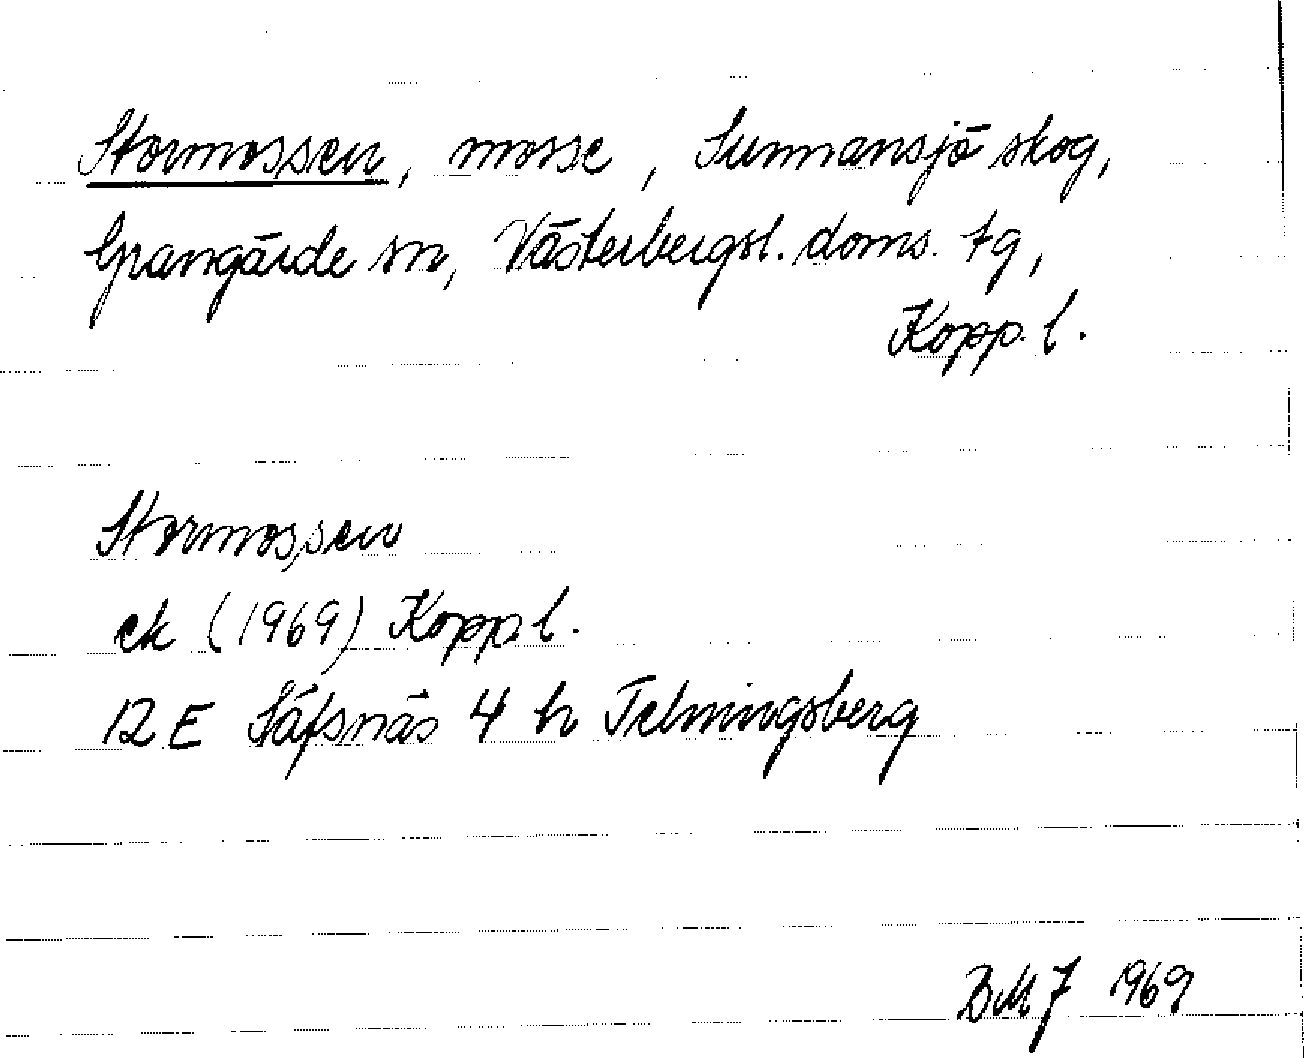 Stormossen, mosse, Sunnansjö skog,
Grangärde sn, Västerbergsl. doms. tg,
Kopp. l.
Stormossen
ek (1969) Kopp. l.
12 E Säfsnäs 4 h Telningsberg
BMJ 1969